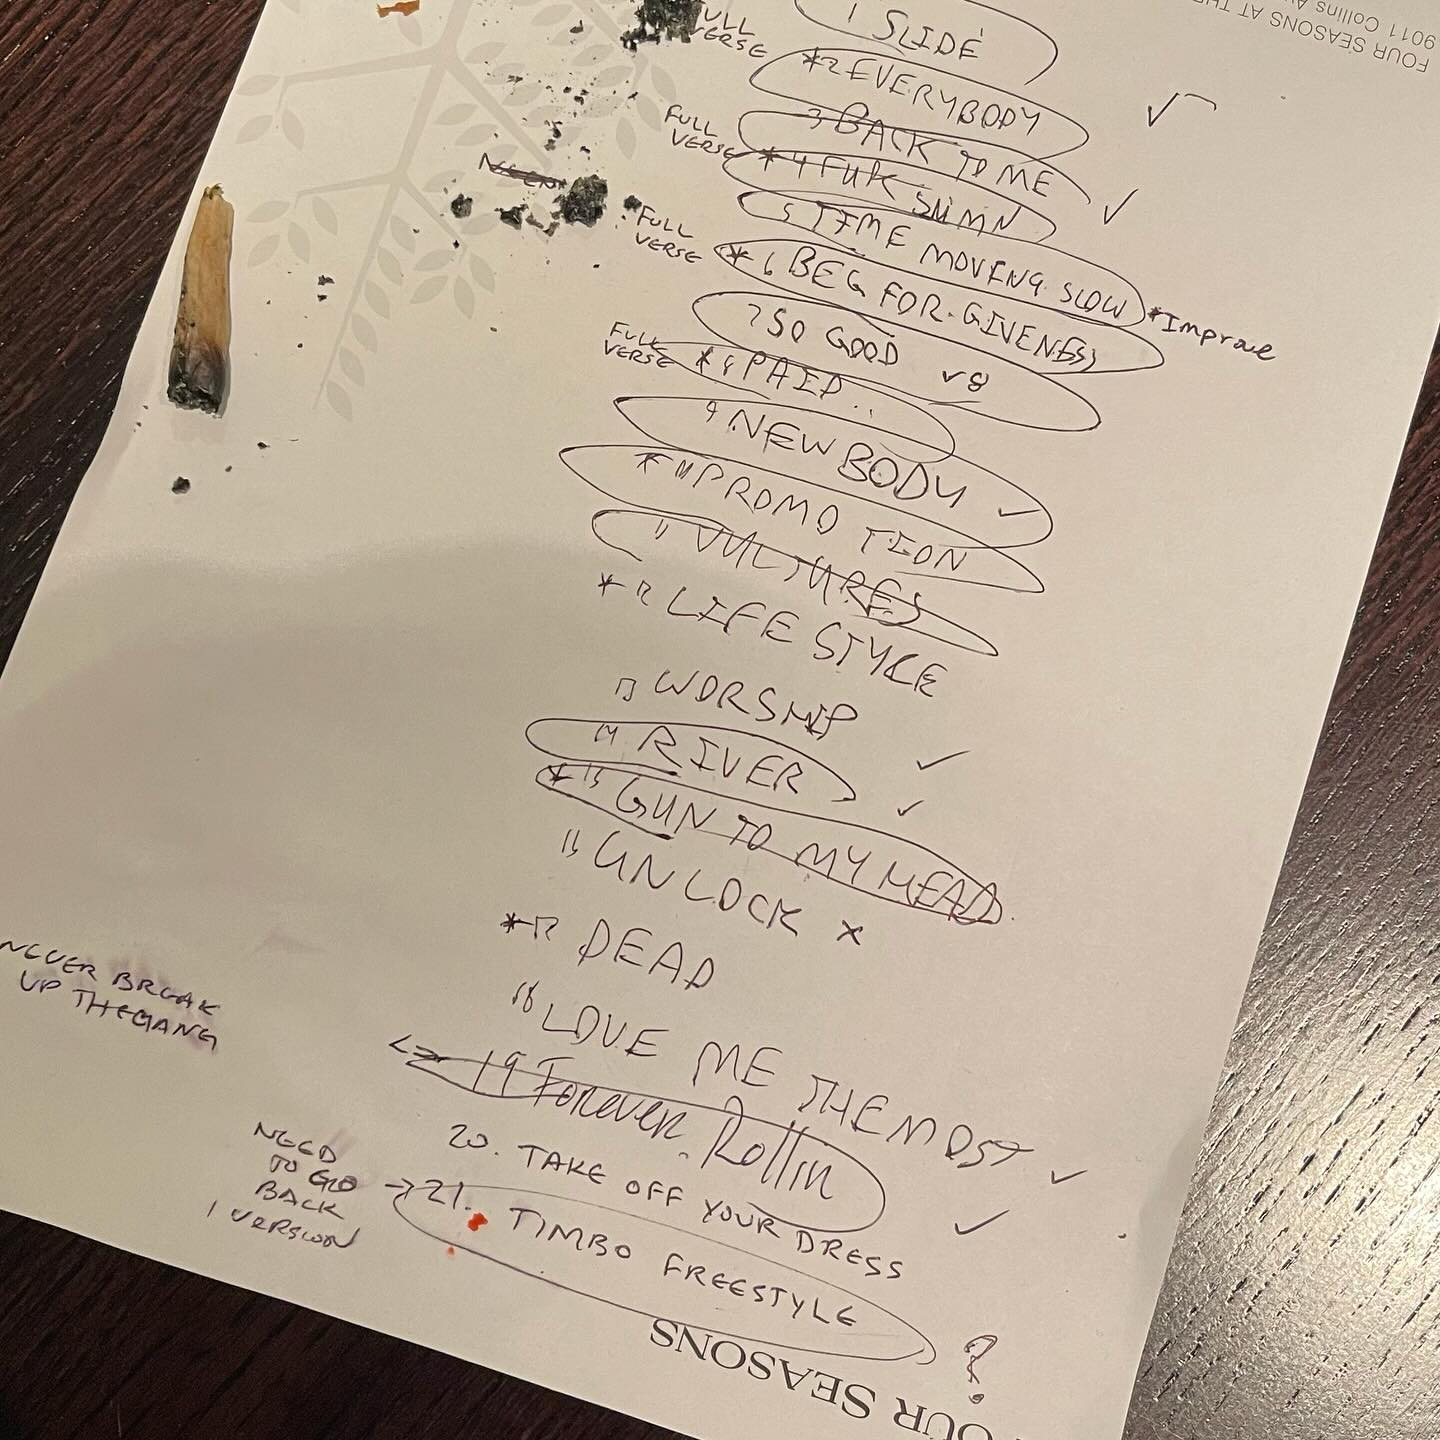 FOUR SEASONS AT THE
9011 Collins Av
1 SLIDE
FULL VERSE
*2 EVERYBODY
3 BACK TO ME
FULL VERSE
*4 FUK SUMN
5 TIME MOVING SLOW
FULL VERSE
*6 BEG FOR-GIVENESS
*Improve
7 SO GOOD ✓8
FULL VERSE
*8 PAID..
9 NEW BODY ✓
*10 PROMOTION
11 VULTURES
*12 LIFE STYLE
13 WORSHIP ✓
14 RIVER ✓
*15 GUN TO MY HEAD
16 UNLOCK X
*17 DEAD
18 LOVE ME THE MOST ✓
NEVER BREAK
UP THE GANG
19 Forever Rollin
20. TAKE OFF YOUR DRESS ✓
NEED
TO GO
BACK
1 VERSION
→21. TIMBO FREESTYLE ?
OUR SEASONS